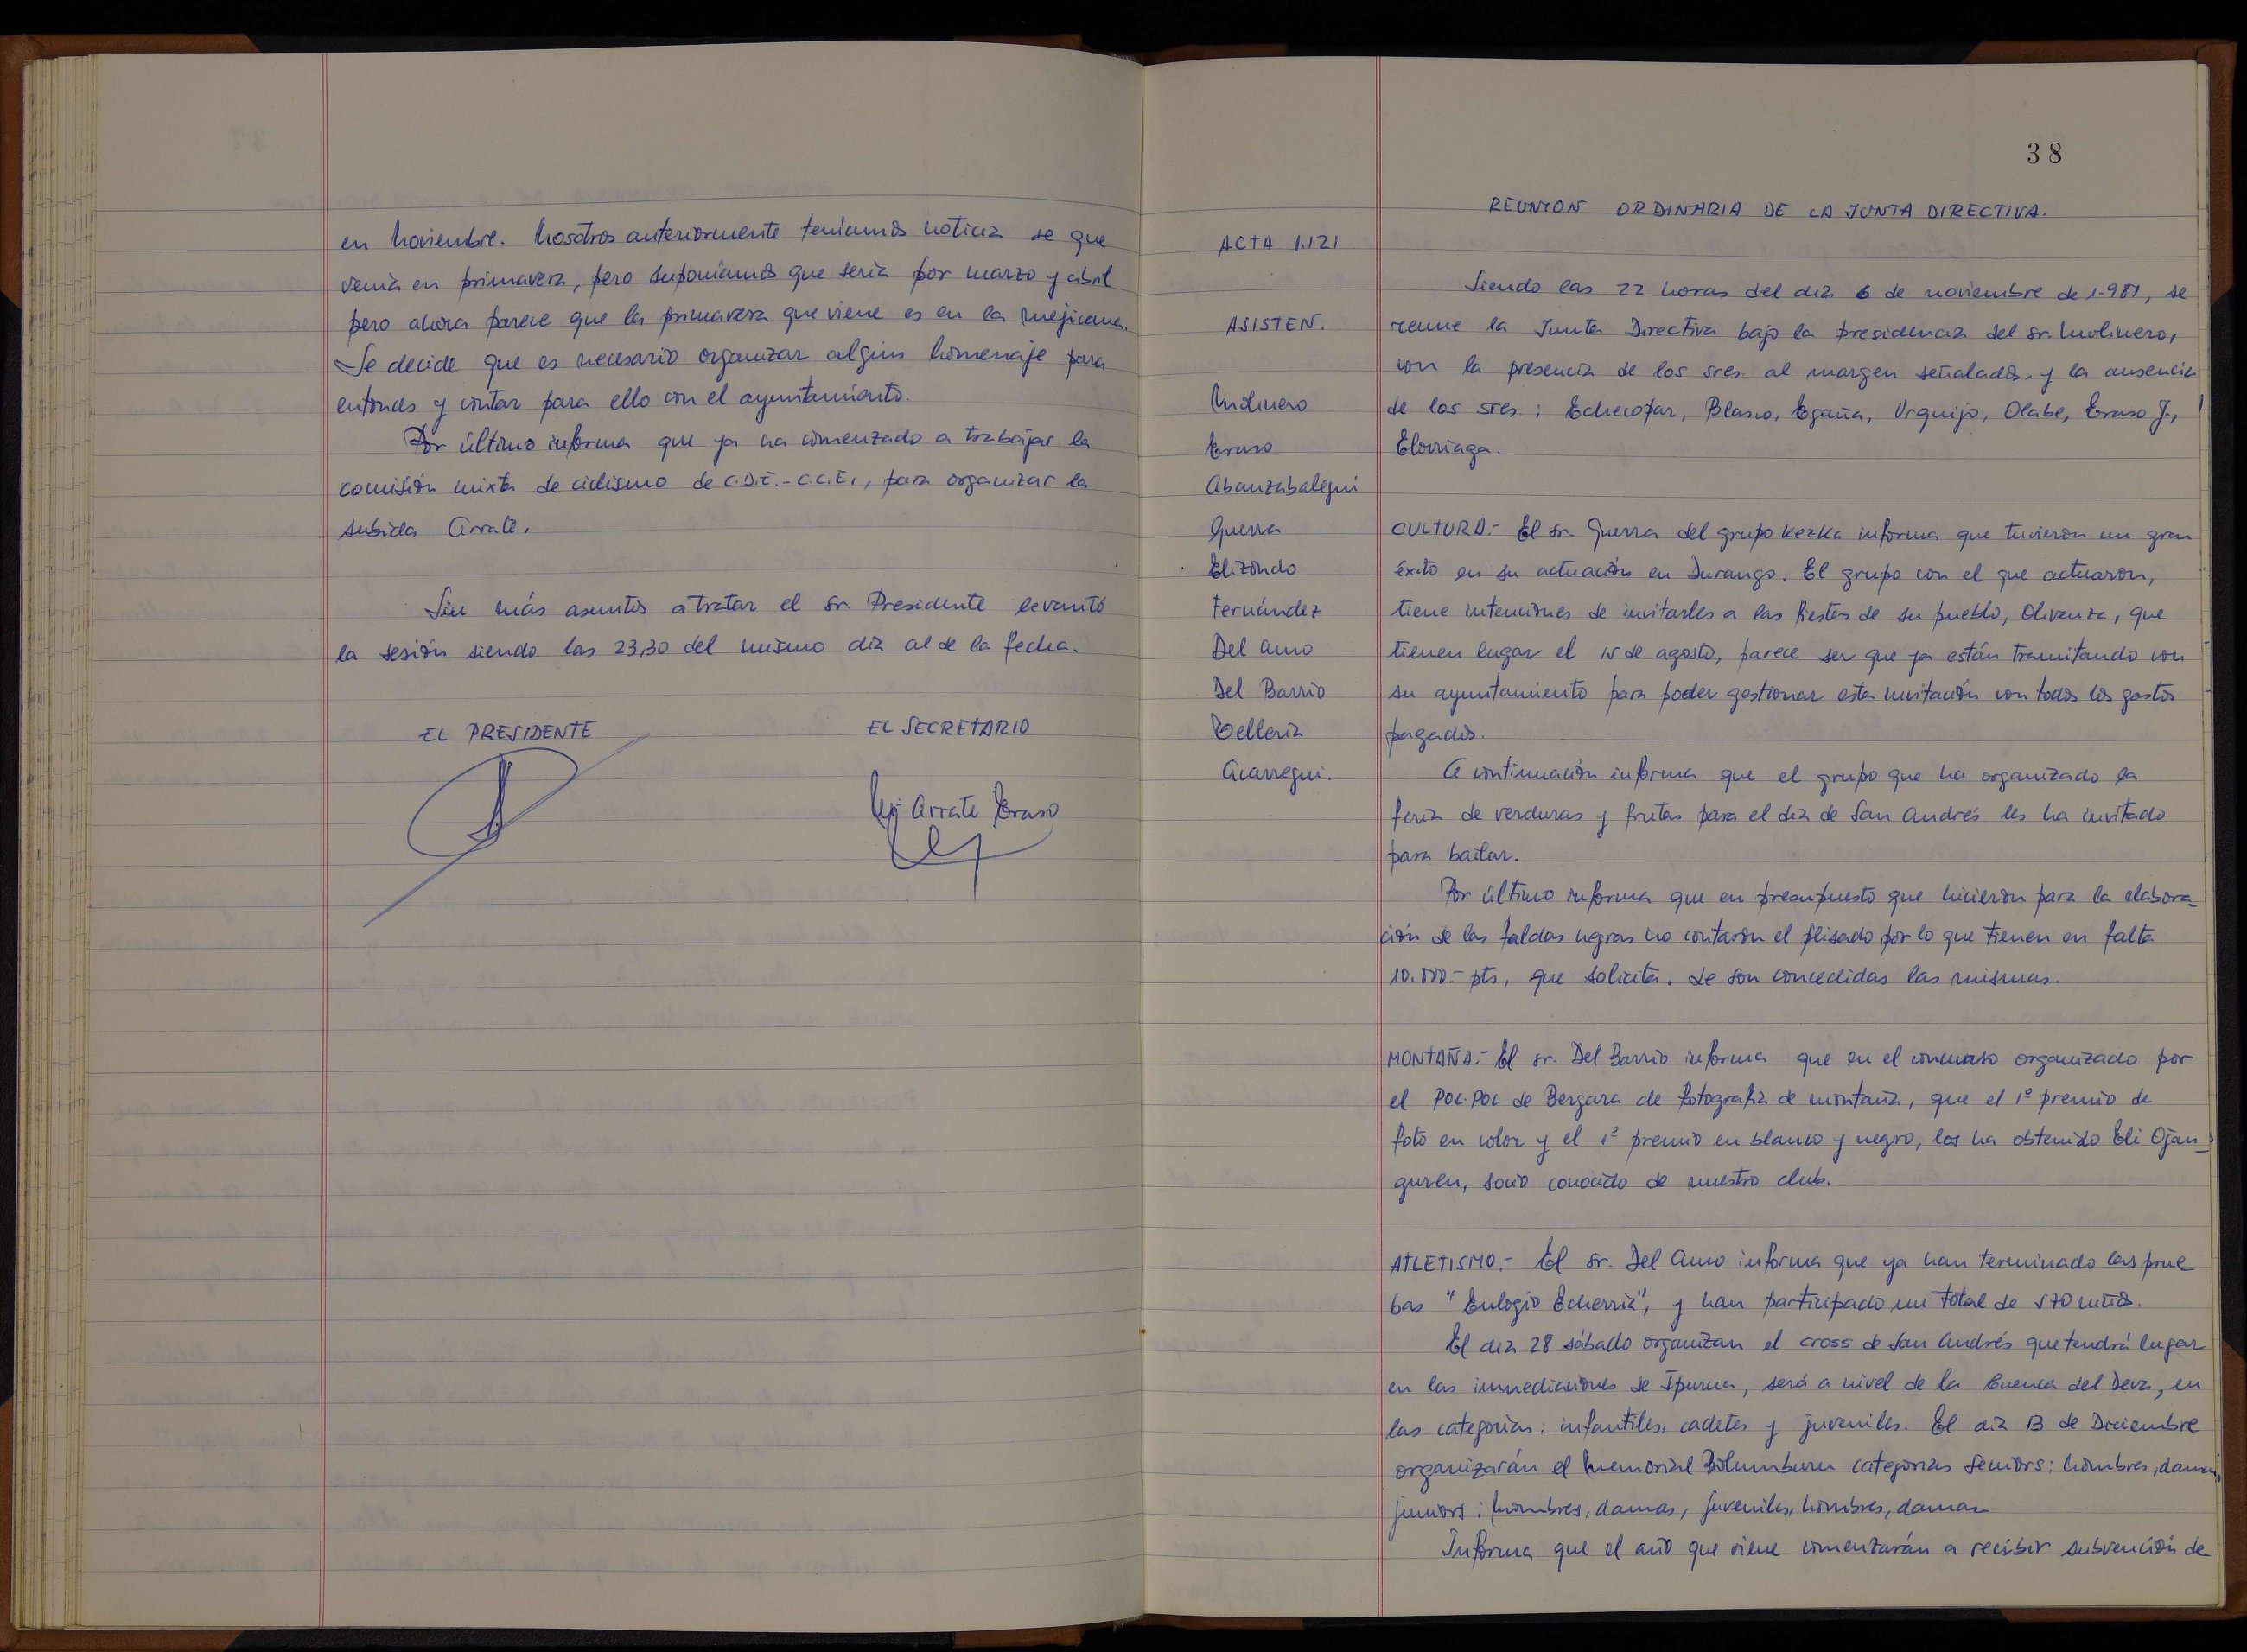 en Noviembre. Nosotros anteriormente teniamos noticia se que
venia en primavera, pero suponiamos que seria por marzo y abril
pero ahora parece que la primavera que viene es en la mejicana.
Se decide que es necesario organizar algun homenaje para
entonces y contar para ello con el ayuntamiento.
Por último informa que ya ha comenzado a trabajar la
comisión mixta de ciclismo de C.D.E.-C.C.E., para organizar la
subida Arrate.
Sin más asuntos a tratar el Sr. Presidente levantó
la sesión siendo las 23,30 del mismo dia al de la fecha.
EL PRESIDENTE
EL SECRETARIO
Mª Arrate Eraso
38
REUNION ORDINARIA DE LA JUNTA DIRECTIVA.
ACTA 1.121
Siendo las 22 horas del dia 6 de noviembre de 1.981, se
ASISTEN.
reune la Junta Directiva bajo la presidencia del Sr. Molinero,
con la presencia de los sres. al margen señalados, y la ausencia
Molinero
de los sres.: Echecopar, Blasco, Egaña, Urquijo, Olabe, Eraso J.,
Eraso
Elorriaga.
Abanzabalegui
Guerra
CULTURA.- El Sr. Guerra del grupo Kezka informa que tuvieron un gran
Elizondo
éxito en su actuación en Durango. El grupo con el que actuaron,
Fernández
tiene intenciones de invitarles a las fiestas de su pueblo, Olivenza, que
Del Amo
tienen lugar el 15 de agosto, parece ser que ya están tramitando con
Del Barrio
su ayuntamiento para poder gestionar esta invitación con todos los gastos
Telleria
pagados.
Acarregui.
A continuación informa que el grupo que ha organizado la
feria de verduras y frutas para el dia de San Andrés les ha invitado
para bailar.
Por último informa que en presupuesto que hicieron para la elabora-
ción de las faldas negras no contaron el plisado por lo que tienen en falta
10.000.- pts, que solicita. Le son concedidas las mismas.
MONTAÑA.- El Sr. Del Barrio informa que en el concurso organizado por
el POL-POL de Bergara de fotografia de montaña, que el 1º premio de
foto en color y el 1º premio en blanco y negro, los ha obtenido Eli Ojan-
guren, socio conocido de nuestro club.
ATLETISMO.- El Sr. Del Amo informa que ya han terminado las prue
bas "Eulogio Echerria", y han participado un total de 570 niños.
El dia 28 sábado organizan el cross de San Andrés que tendrá lugar
en las inmediaciones de Ipurua, será a nivel de la Cuenca del Deva, en
las categorias: infantiles, cadetes y juveniles. El dia 13 de Diciembre
organizarán el Memorial Bolumburu categorias Seniors: hombres, damas,
juniors: hombres, damas, juveniles, hombres, damas
Informa que el año que viene comenzarán a recibir subvención de